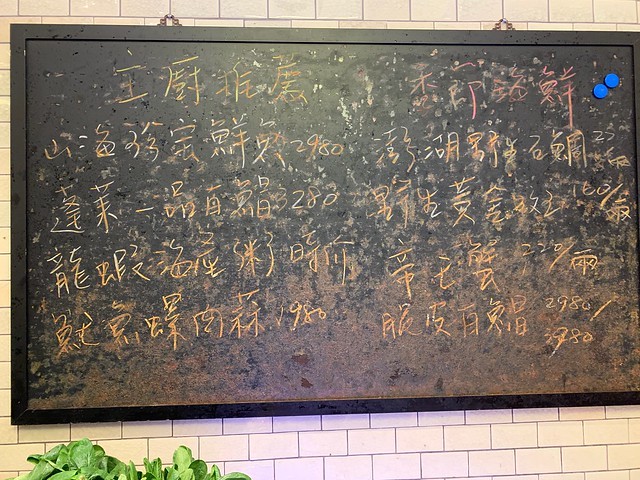 主廚推薦
山海珍宝鮮 2980
蓬萊一品百鯧 3280
龍蝦海陸粥 時价
魷魚螺肉蒜 1980
季節海鮮
澎湖野生石鯛 25/兩
野生黃金 160/兩
帝王蟹 220/兩
脆皮百鯧 2980/3980